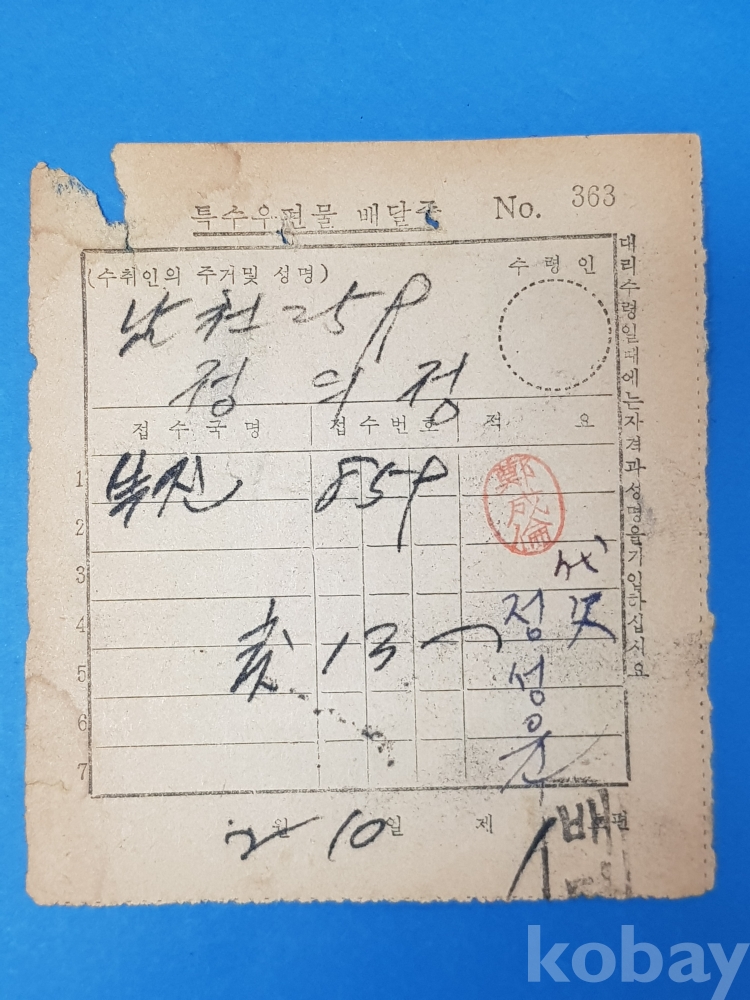 특수우편물 배달증 No. 363
(수취인의 주거및 성명) 수령인
남천 259
정 의 정
접수국명 접수번호 적 요
1 부산 859
鄭成倫
2
3 代
4 정성윤
5
6
7
대리수령일때에는자격과성명을기입하십시요
2월 10일 제 1 편
배
kobay